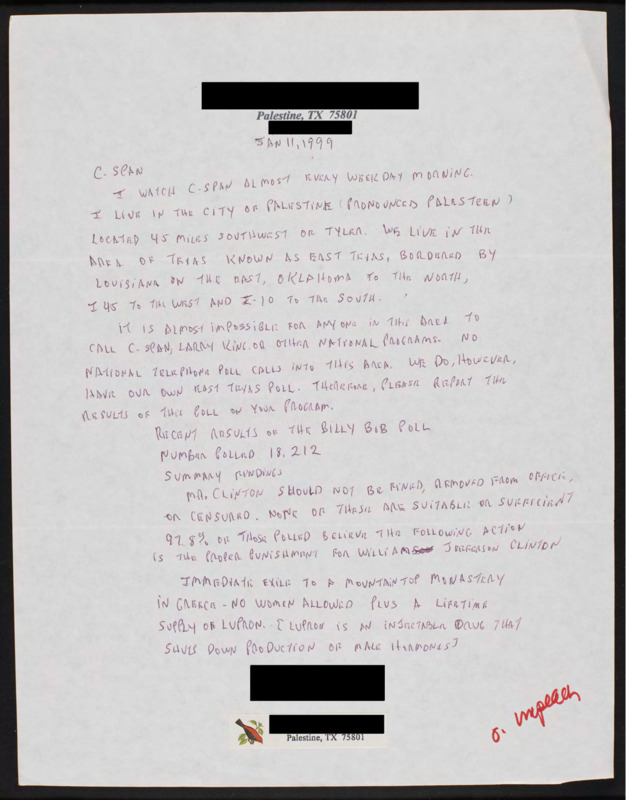 Palestine, TX 75801
JAN 11, 1999
C-SPAN
I WATCH C-SPAN ALMOST EVERY WEEKDAY MORNING.
I LIVE IN THE CITY OF PALESTINE (PRONOUNCED PALESTEEN)
LOCATED 45 MILES SOUTHWEST OF TYLER. WE LIVE IN THE
AREA OF TEXAS KNOWN AS EAST TEXAS, BORDERED BY
LOUISIANA ON THE EAST, OKLAHOMA TO THE NORTH,
I 45 TO THE WEST AND I-10 TO THE SOUTH.
IT IS ALMOST IMPOSSIBLE FOR ANYONE IN THIS AREA TO
CALL C-SPAN, LARRY KING OR OTHER NATIONAL PROGRAMS. NO
NATIONAL TELEPHONE POLL CALLS INTO THIS AREA. WE DO, HOWEVER,
HAVE OUR OWN EAST TEXAS POLL. THEREFORE, PLEASE REPORT THE
RESULTS OF THIS POLL ON YOUR PROGRAM.
RECENT RESULTS OF THE BILLY BOB POLL
NUMBER POLLED 18,212
SUMMARY FINDINGS
MR. CLINTON SHOULD NOT BE FINED, REMOVED FROM OFFICE,
OR CENSURED. NONE OF THESE ARE SUITABLE OR SUFFICIENT
97.8% OF THOSE POLLED BELIEVE THE FOLLOWING ACTION
IS THE PROPER PUNISHMENT FOR WILLIAM JEFFERSON CLINTON
IMMEDIATE EXILE TO A MOUNTAIN TOP MONASTERY
IN GREECE - NO WOMEN ALLOWED PLUS A LIFETIME
SUPPLY OF LUPRON. [LUPRON IS AN INJECTABLE DRUG THAT
SHUTS DOWN PRODUCTION OF MALE HORMONES]
Palestine, TX 75801
o. impeach